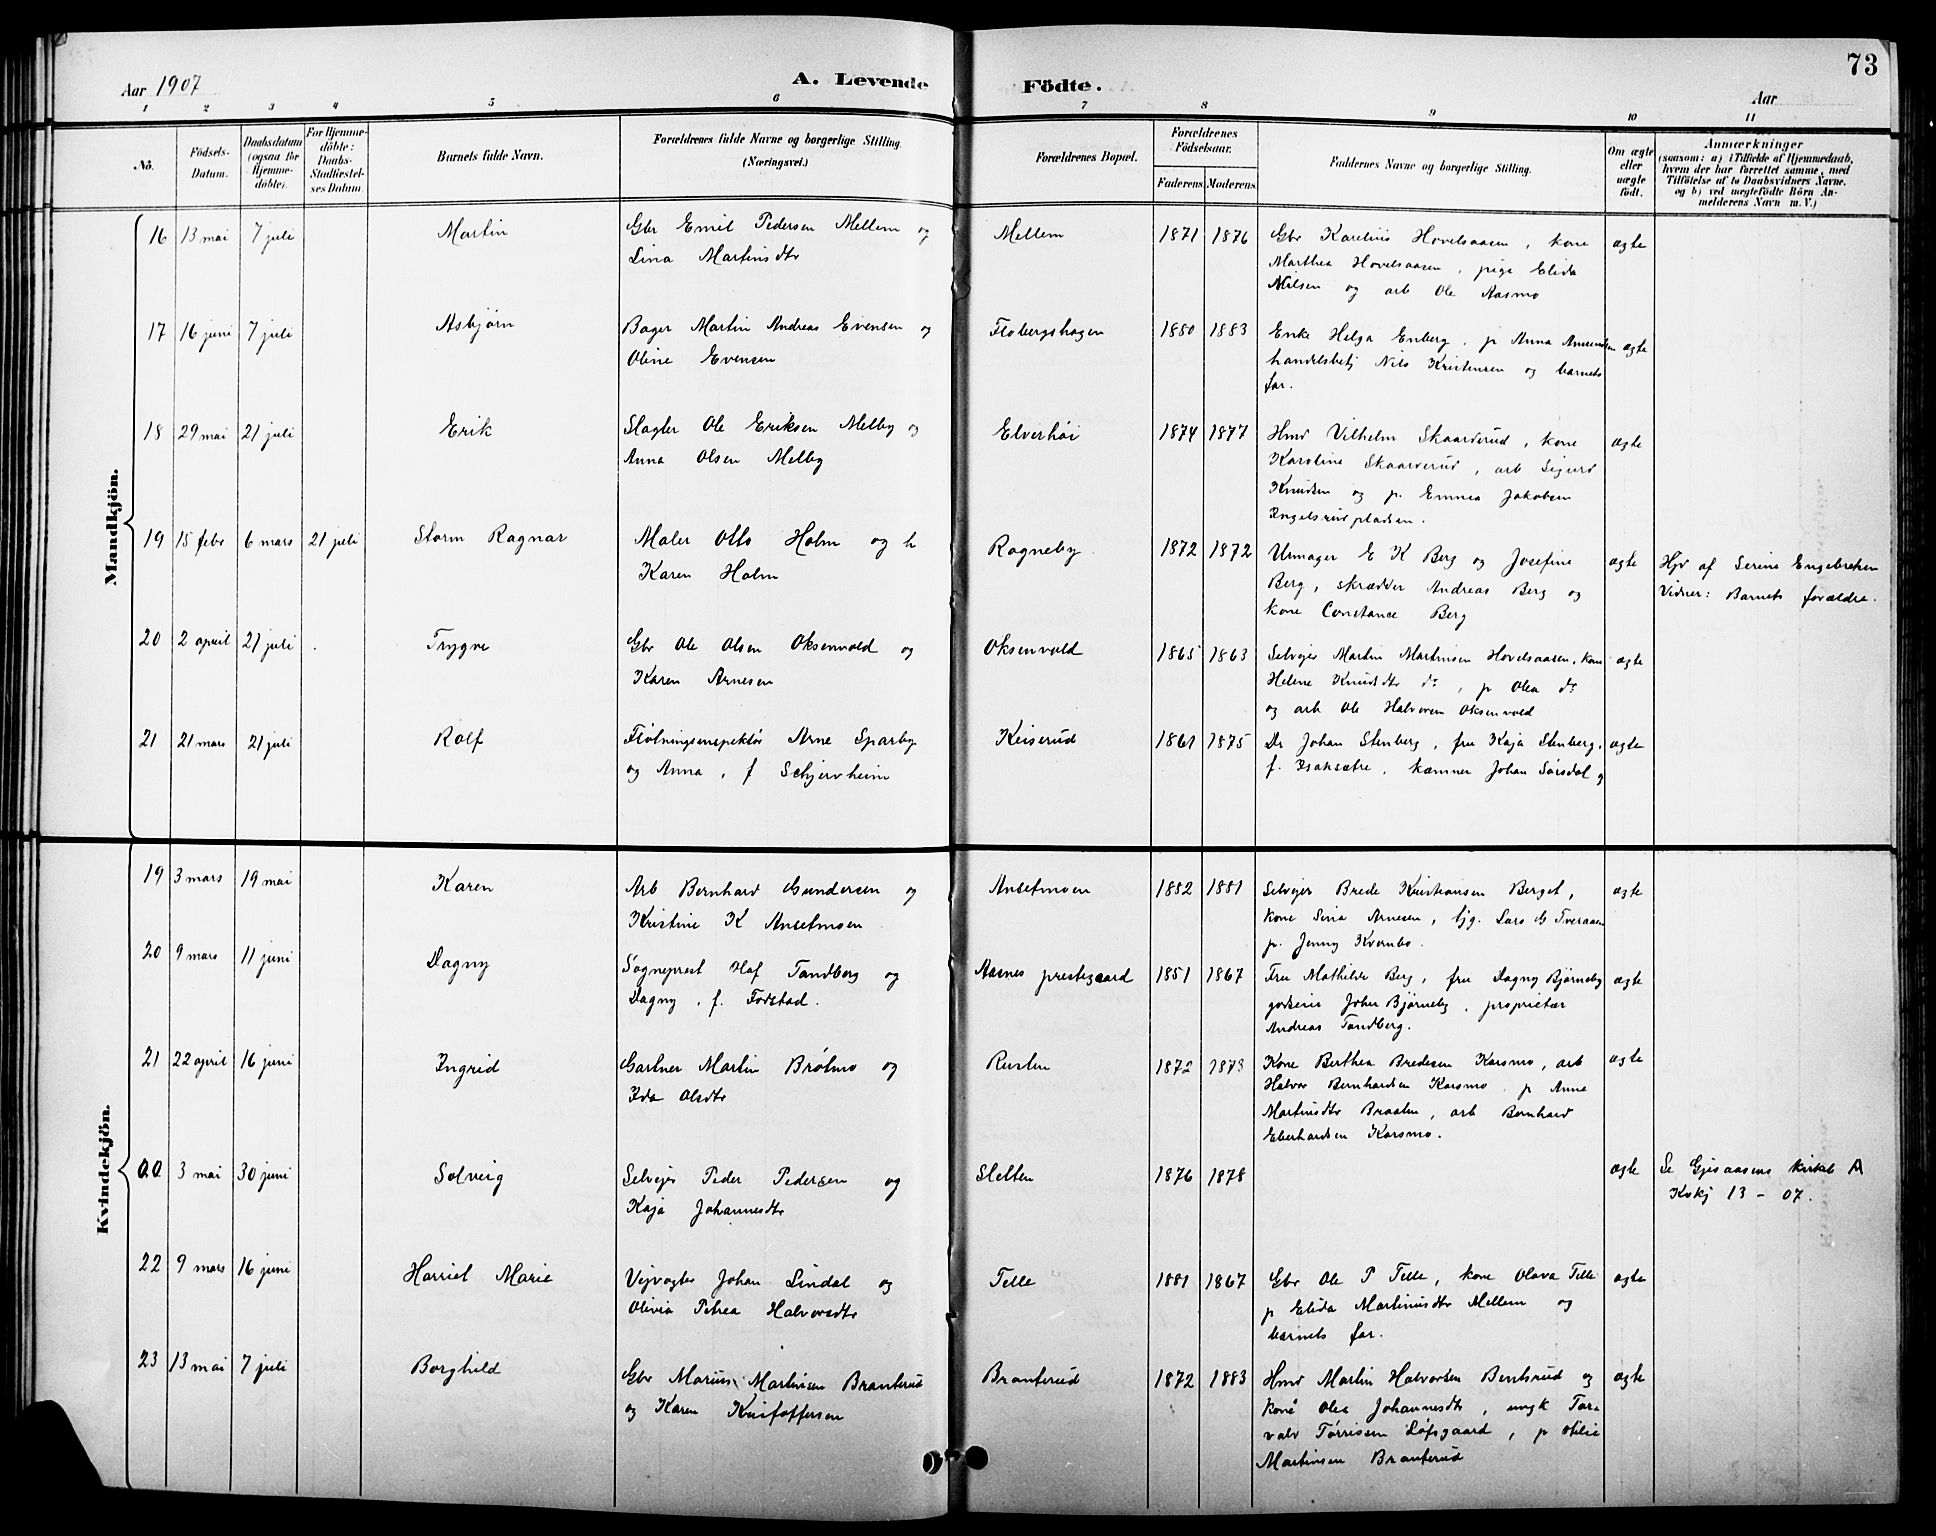 73
Aar 1907
A. Levende Födte.
Aar
1 2 3 4 5 6 7 8 9 10 11
No.
Födsels-Datum.
Daabsdatum (ogsaa for Hjemme-döbte).
For Hjemme-döbte: Daabs-Stadfæstel-ses Datum.
Barnets fulde Navn.
Forældrenes fulde Navne og borgerlige Stilling. (Næringsvei.)
Forældrenes Bopæl.
Forældrenes Födselsaar.
Faderens. Moderens.
Faddernes Navne og borgerlige Stilling.
Om ægte eller uægte født.
Anmærkninger
(saasom: a) i Tilfælde af Hjemmedaab,
hvem der har forrettet samme, med
Tilföielse af to Daabsvidners Navne.
og b) ved uægtefödte Börn An-
melderens Navn m. V.)
Mandkjön.
16 13 mai 7 juli Martin
Gbr Emil Pedersen Mellem og
Lina Martinsdtr
Mellem 1871 1876
Gbr Karelius Hovelsaasen, kone
Marthea Hovelsaasen, pige Elida
Nilsen og arb Ole Aasmo
ægte
17 16 juni 7 juli Asbjørn
Bager Martin Andreas Evensen og
Oline Evensen
Flobergshagen 1880 1883
Enke Helga Enberg, p Anna Amundsen
handelsbetj Nils Kristensen og barnets
far.
ægte
18 29 mai 21 juli Erik
Slagter Ole Eriksen Melby og
Anna Olsen Melby
Elverhøi 1874 1877
Hmd Vilhelm Skaarderud, kone
Karoline Skaarderud, arb Sigurd
Knudsen og p. Emma Jakobsen
Engelsrudpladsen.
ægte
19 15 febr 6 mars 21 juli Storm Ragnar
Maler Otto Holm og h
Karen Holm
Rogneby 1872 1872
Urmager E K Berg og Josefine
Berg, skrædder Andreas Berg og
kone Constance Berg
ægte
Hjd af Serine Engebretsen
Vidner: Barnets forældre.
20 2 april 21 juli Trygve
Gbr Ole Olsen Oksenvold og
Karen Arnesen
Oksenvold 1865 1863
Selvejer Martin Martinsen Hovelsaasen, kone
Helene Knudsdtr do, p Olea do
og arb Ole Halvorsen Oksenvold
ægte
21 21 mars 21 juli Rolf
Fløtningsinspektør Arne Sparby
og Anna, f Schjerveheim
Keiserud 1861 1875
Dr Johan Stenberg, fru Kaja Stenberg,
f. Isaksætre, kæmner Johan Sørsdal og
ægte
Kvindekjön.
19 3 mars 19 mai Karen
Arb Bernhard Gundersen og
Kristine K Anselmoen
Anselmoen 1882 1881
Selvejer Brede Kristiansen Berget,
kone Lina Arnesen, tjg. Lars G Tveraaen
p. Jenny Kvernbo.
ægte
20 9 mars 11 juni Dagny
Sogneprest Olaf Tandberg og
Dagny, f. Fodstad.
Aasnes prestegaard 1851 1867
Fru Mathilde Berg, fru Dagny Bjørneby
godseier Johan Bjørneby, proprietær
Andreas Tandberg.
ægte
21 22 april 16 juni Ingrid
Gartner Martin Brøtmo og
Ida Olsdtr
Rusten 1872 1873
Kone Berthea Bredesen Karsmo, arb
Halvor Bernhardsen Karsmo p Anne
Martinsdtr Braaten, arb Bernhard
Eberhardsen Karsmo.
ægte
00 3 mai 30 juni Solveig
Selvejer Peder Pedersen og
Kaja Johannesdtr
Sletten 1876 1878
ægte
Se Gjesaasens kirke A
Kvkj 13 - 07.
22 9 mars 16 juni Harriet Marie
Vejvogter Johan Lindal og
Olivia Petrea Halvorsdtr
Telle 1881 1867
Gbr Ole P Telle, kone Olava Telle
p Elida Martinusdtr Mellem og
barnets far.
ægte
23 13 mai 7 juli Borghild
Gbr Marius Martinsen Branterud
og Karen Kristoffersen
Branterud 1872 1883
Hmd Martin Halvorsen Bentsrud og
kone Olea Johannesdtr, ungk Tor-
valv Torrissen Løfsgaard, p Otilie
Martinsen Branterud
ægte